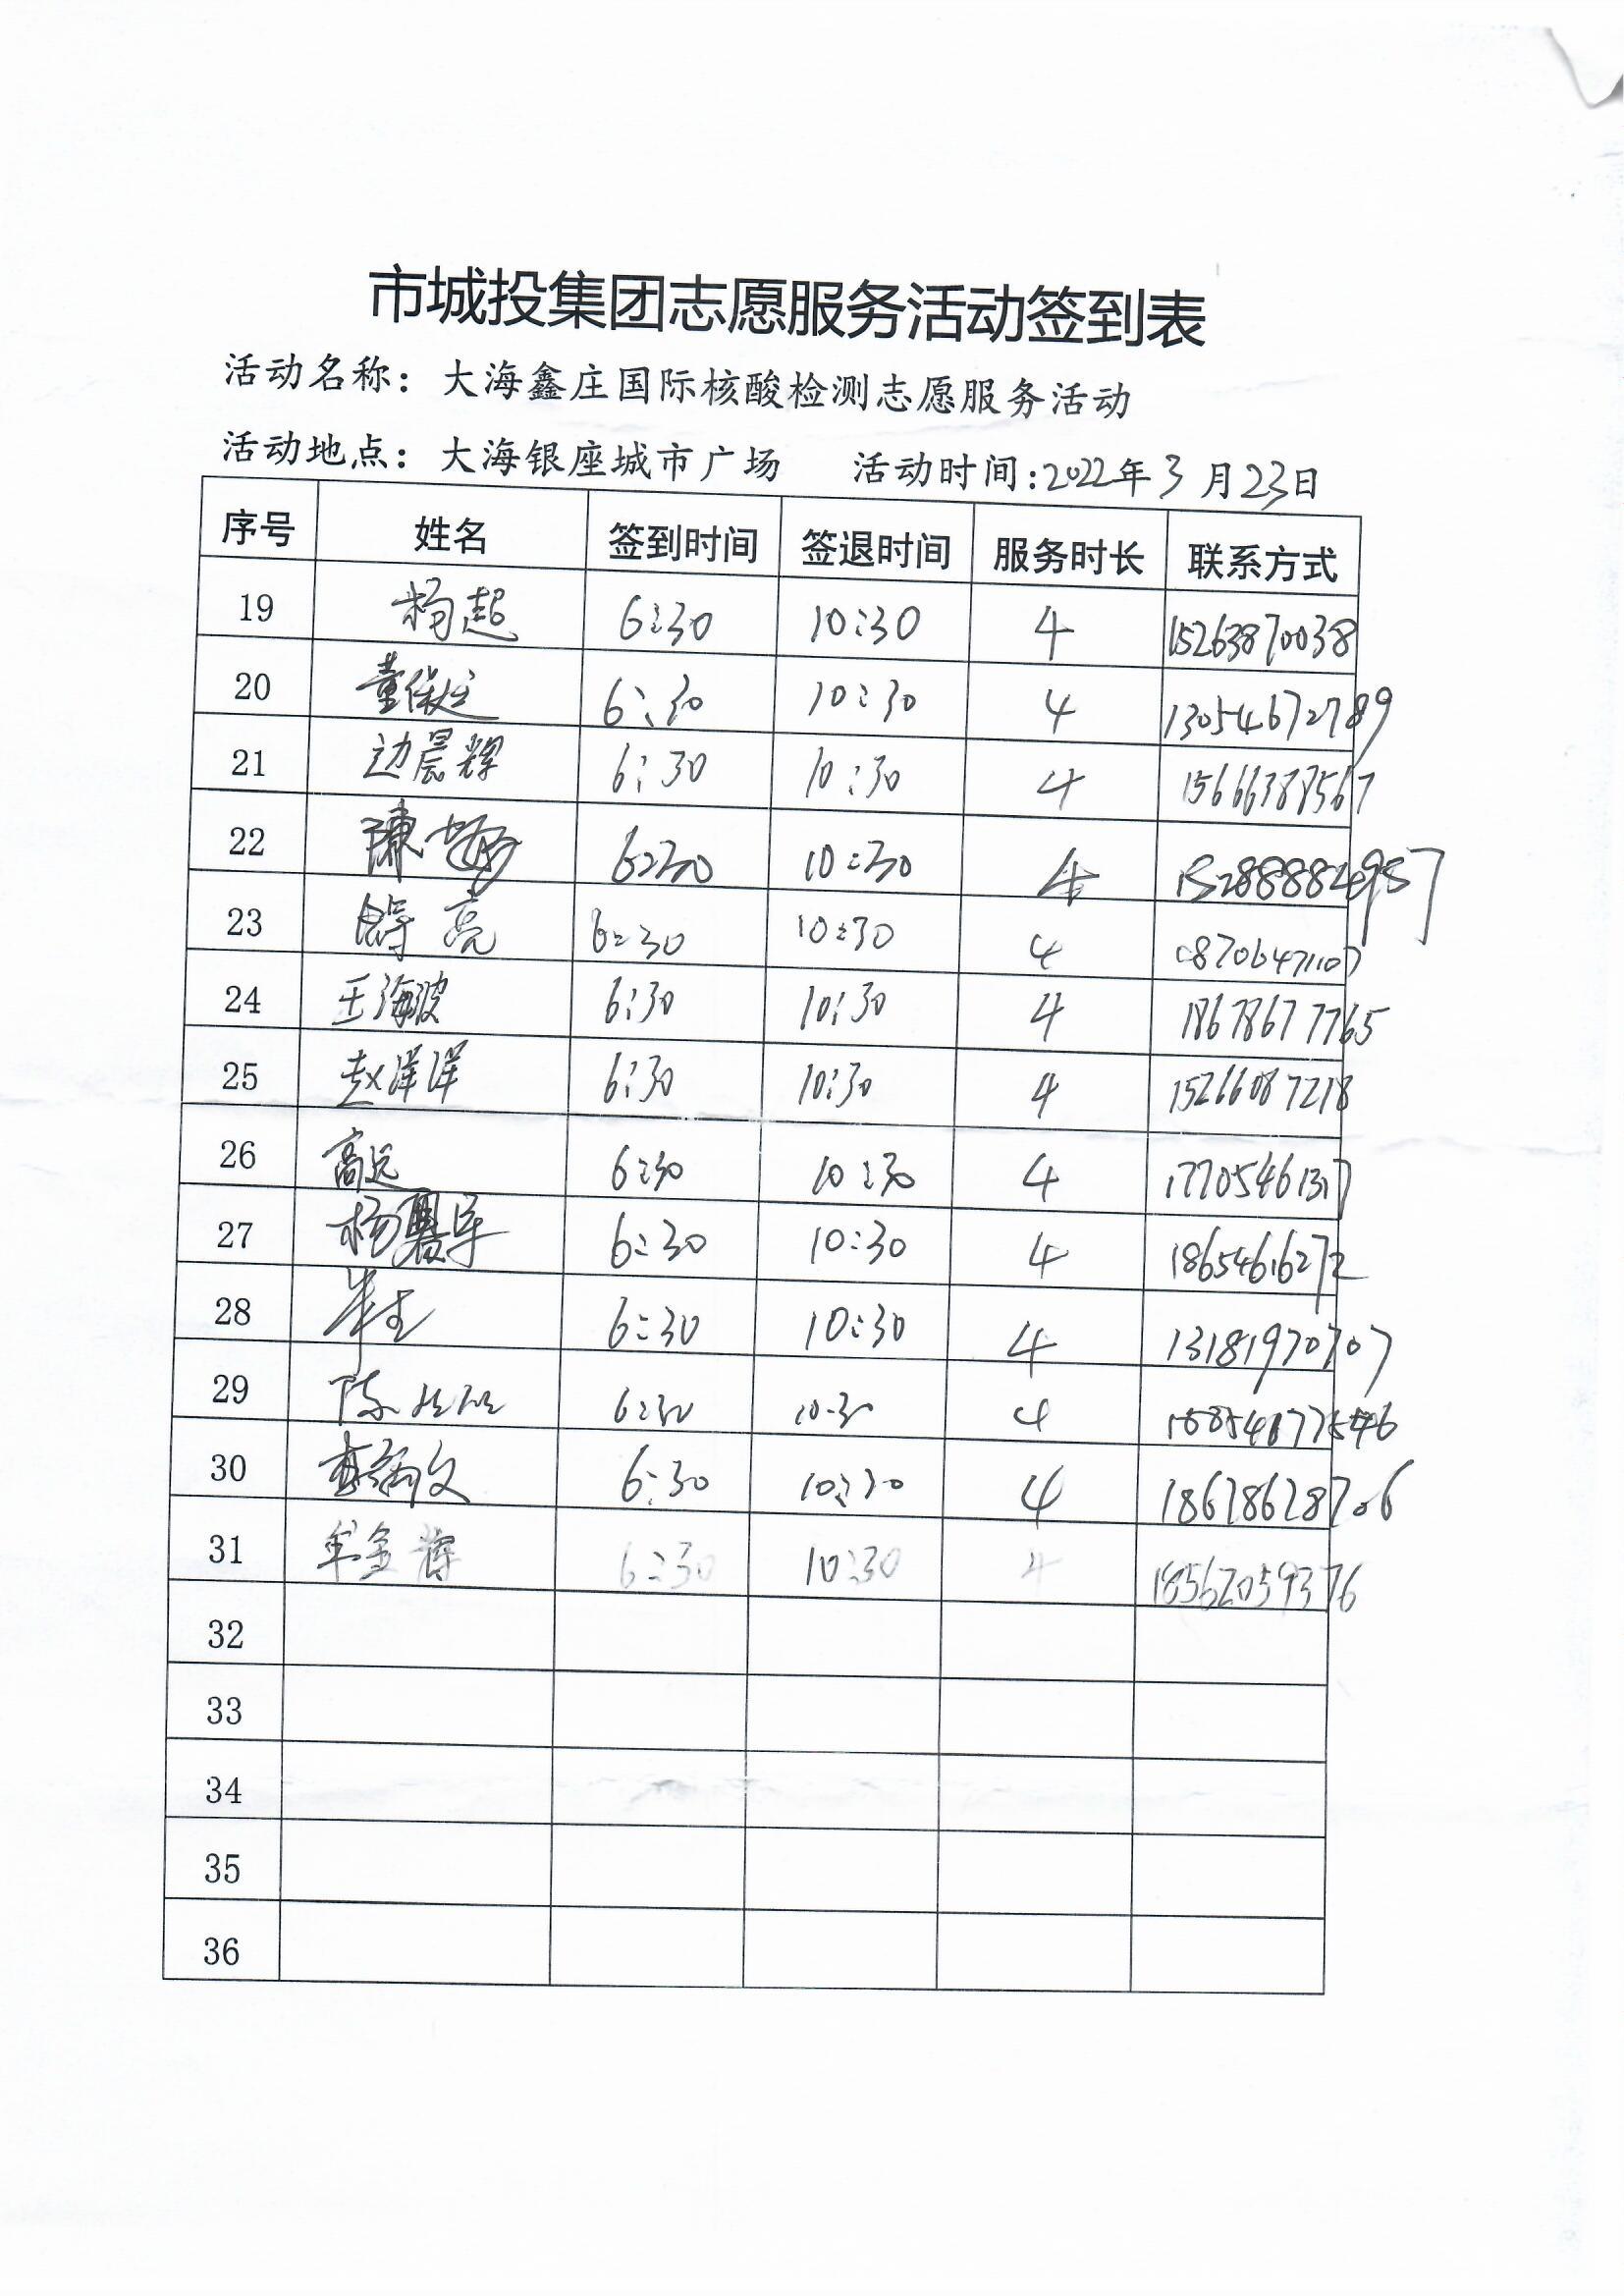 市城投集团志愿服务活动签到表
活动名称：大海鑫庄国际核酸检测志愿服务活动
活动地点：大海银座城市广场 活动时间:2022年3月23日
序号 姓名 签到时间 签退时间 服务时长 联系方式
19 杨超 6:30 10:30 4 15263870038
20 董保廷 6:30 10:30 4 13054672789
21 边晨辉 6:30 10:30 4 15666388567
22 6:30 10:30 4
23 亮 6:30 10:30 4 18706471107
24 王海波 6:30 10:30 4 18678677765
25 赵洋洋 6:30 10:30 4 15266087218
26 高远 6:30 10:30 4 17705461317
27 杨 军 6:30 10:30 4
28 6:30 10:30 4 13181970707
29 陈 6:30 10:30 4
30 文 6:30 10:30 4 18678628706
31 牟金辉 6:30 10:30 4 18562059376
32
33
34
35
36